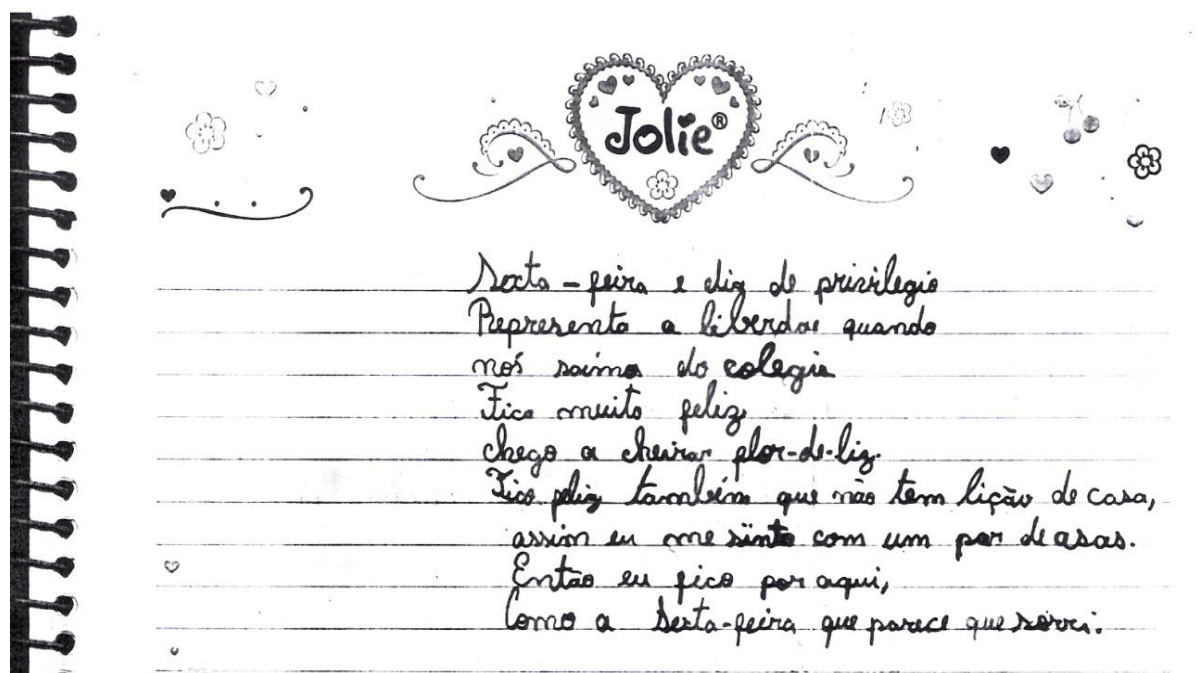 Jolie®
Sexta-feira e diz de privilegio
Representa a liberdae quando
nós saimos do colegio
Fico muito feliz
chego a cheirar flor-de-liz.
Fico feliz também que não tem lição de casa,
assim eu me sinto com um par de asas.
Então eu fico por aqui,
Como a Sexta-feira que parece que sorri.